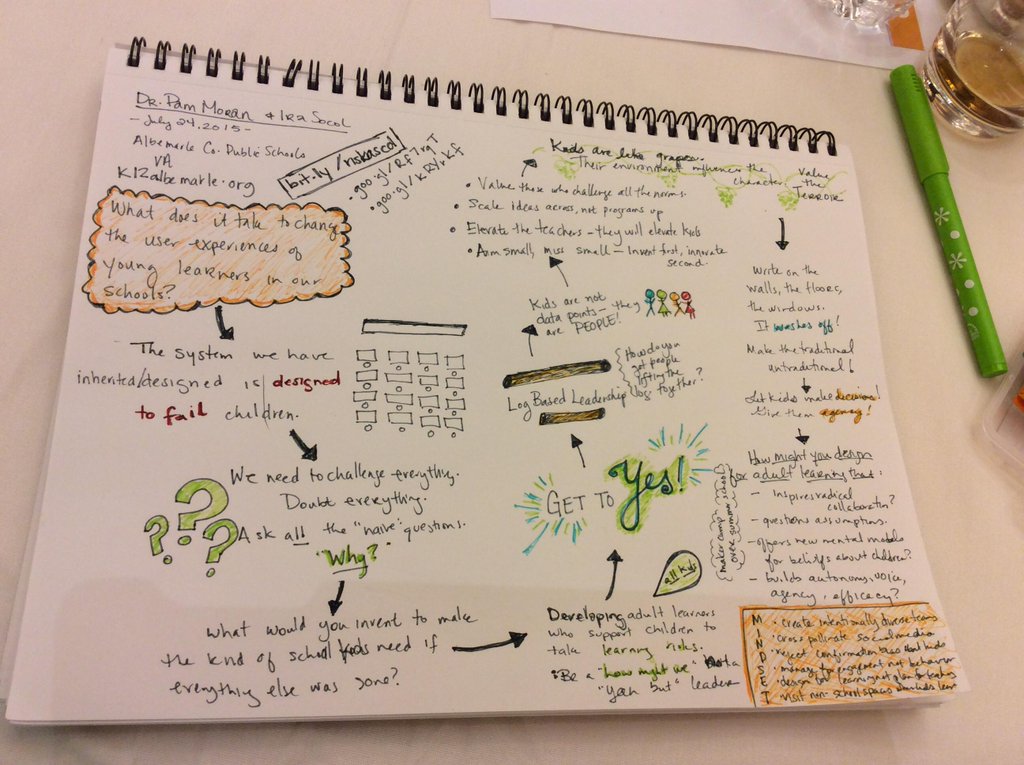 Dr. Pam Moran & Ira Socol
- July 24, 2015 -
Albemarle Co. Public Schools
VA
K12albemarle.org
bit.ly/riskased
• goo.gl/Rf7rqT
• goo.gl/kRYrkf
What does it take to change
the user experiences of
young learners in our
schools?
The system we have
inherited/designed is designed
to fail children.
We need to challenge everything.
Doubt everything.
Ask all the "naive" questions.
"Why?"
???
What would you invent to make
the kind of school kids need if
everything else was gone?
Developing adult learners
who support children to
take learning risks.
• Be a "how might we" Not a
"yeah but" leader
all kids
maker camp
over summer school
GET TO Yes!
Log Based Leadership
How do you
get people
lifting the
log together?
Kids are not
data points - they
are PEOPLE!
• Value those who challenge all the norms.
• Scale ideas across, not programs up
• Elevate the teachers - they will elevate kids
• Aim small, miss small - Invent first, innovate
second.
Kids are like grapes.
Their environment influences the
character.
Value
the
TERROIR
Write on the
walls, the floors,
the windows.
It washes off!
Make the traditional
untraditional!
Let kids make decisions!
Give them agency!
How might you design
for adult learning that:
- inspires radical
collaboration?
- questions assumptions.
- offers new mental models
for beliefs about children?
- builds autonomy, voice,
agency, efficacy?
MINDSET
• create intentionally diverse teams
• cross pollinate social media
• reject confirmation bias about kids
• manage for engagement not behavior
• design for learning not plan for teaching
• visit non-school spaces where kids learn